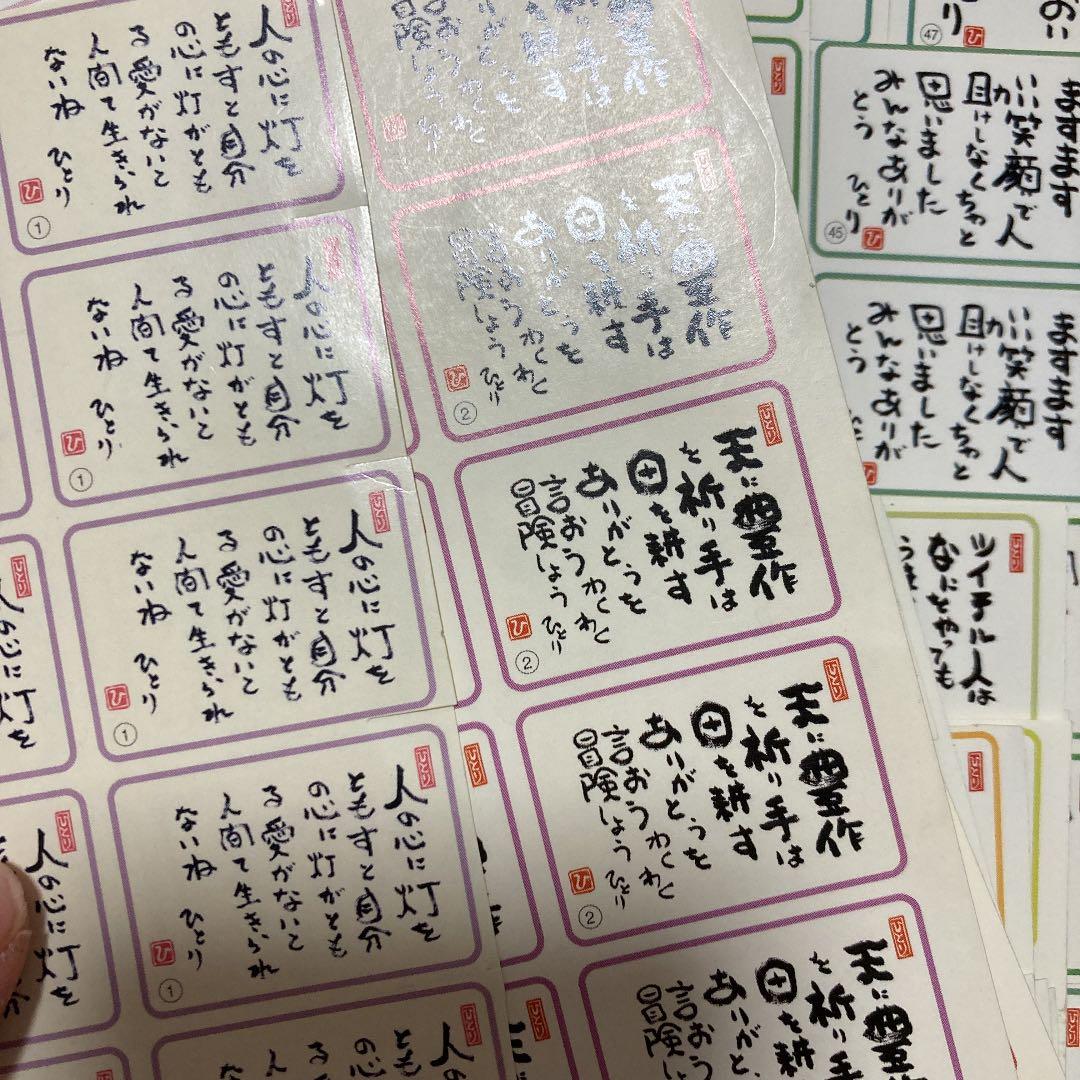 ひとり
人の心に灯を
ともすと自分
の心に灯がとも
る愛がないと
人間て生きられ
ないね ひとり
ひ
①
ひとり
人の心に灯を
ともすと自分
の心に灯がとも
る愛がないと
人間て生きられ
ないね ひとり
ひ
①
ひとり
人の心に灯を
ともすと自分
の心に灯がとも
る愛がないと
人間て生きられ
ないね ひとり
ひ
①
ひとり
人の心に灯を
ともすと自分
の心に灯がとも
る愛がないと
人間て生きられ
ないね ひとり
ひ
①
ひとり
人の
とも
の心
る愛
人間
ひとり
人の心に灯を
ひとり
人の心に灯を
豊作
祈り手は
を耕す
ありがとうを
言おうわくわく
冒険しょう
ひとり
天に豊作
を祈り手は
田を耕す
ありがとうを
言おうわくわく
冒険しょう ひとり
ひ
②
ひとり
天に豊作
を祈り手は
田を耕す
ありがとうを
言おうわくわく
冒険しょう ひとり
ひ
②
ひとり
天に豊作
を祈り手は
田を耕す
ありがとうを
言おうわくわく
冒険しょう ひとり
ひ
②
ひとり
天に豊作
を祈り手は
田を耕す
ありがと
言おう
冒険しょう
ひとり
ひとり
ひとり
㊼
ひ
ますます
いい笑顔で人
助けしなくちゃと
思いました
みんなありが
とう ひとり
ひ
㊺
ますます
いい笑顔で人
助けしなくちゃと
思いました
みんなありが
とう
ひとり
ツイテル人は
なにをやっても
ひとり